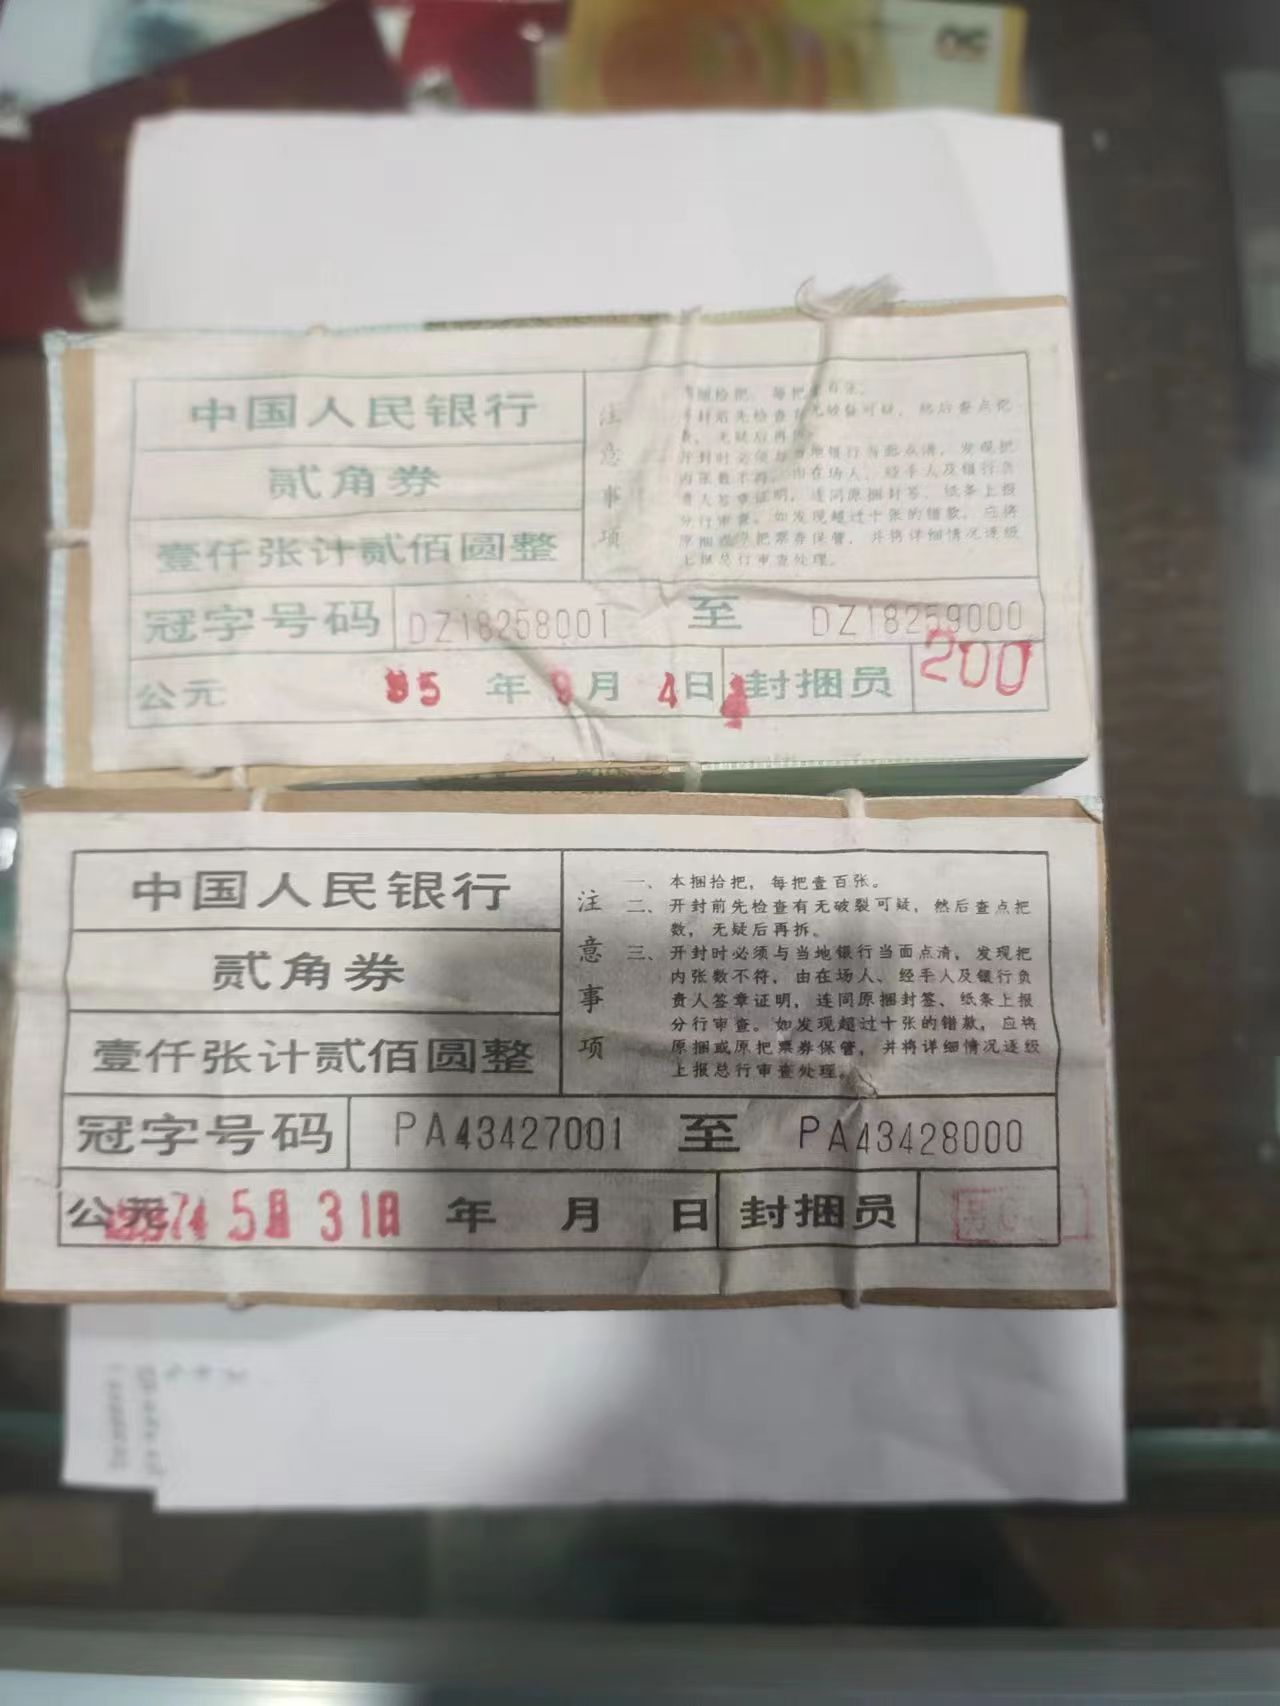 50
中国人民银行
贰角券
壹仟张计贰佰圆整
注意事项
捆拾把，每把壹百张。
封前先检查有无破裂可疑，然后查点把
数，无疑后再拆。
开封时必须与当地银行当面点清，发现把
内张数不符，由在场人、经手人及银行负
责人签章证明，连同原捆封签、纸条上报
分行审查。如发现超过十张的错款，应将
原捆或原把票券保管，并将详细情况逐级
上报总行审查处理。
冠字号码 DZ18258001 至 DZ18259000
公元 95 年 9 月 4 日 封捆员 200
中国人民银行
贰角券
壹仟张计贰佰圆整
注意事项
一、本捆拾把，每把壹百张。
二、开封前先检查有无破裂可疑，然后查点把
数，无疑后再拆。
三、开封时必须与当地银行当面点清，发现把
内张数不符，由在场人、经手人及银行负
责人签章证明，连同原捆封签、纸条上报
分行审查。如发现超过十张的错款，应将
原捆或原把票券保管，并将详细情况逐级
上报总行审查处理。
冠字号码 PA43427001 至 PA43428000
公元 5月31日 年 月 日 封捆员